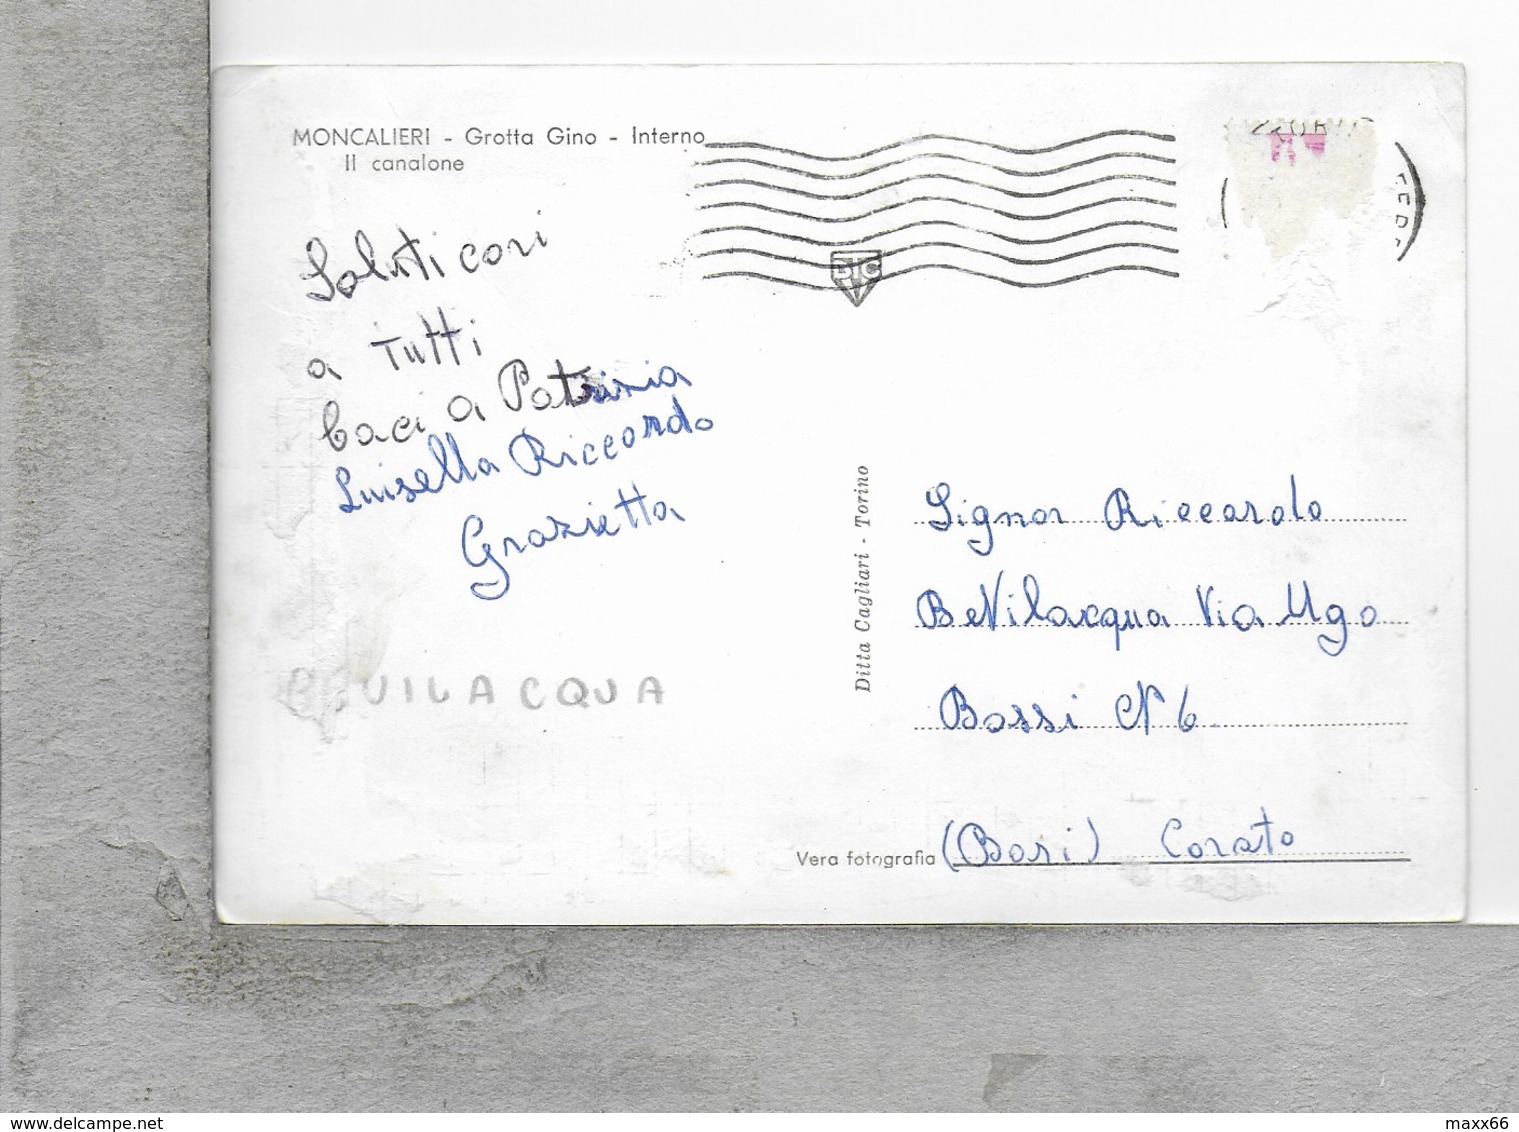 MONCALIERI - Grotta Gino - Interno
Il canalone
BIC
Saluti cari
a tutti
baci a Patrizia
Luisella Riccardo
Grazietta
BEVILACQUA
Ditta Cagliari - Torino
Signor Riccardo
BeVilacqua Via Ugo
Bassi N 6
Vera fotografia (Bari) Corato
delcampe.net
maxx66